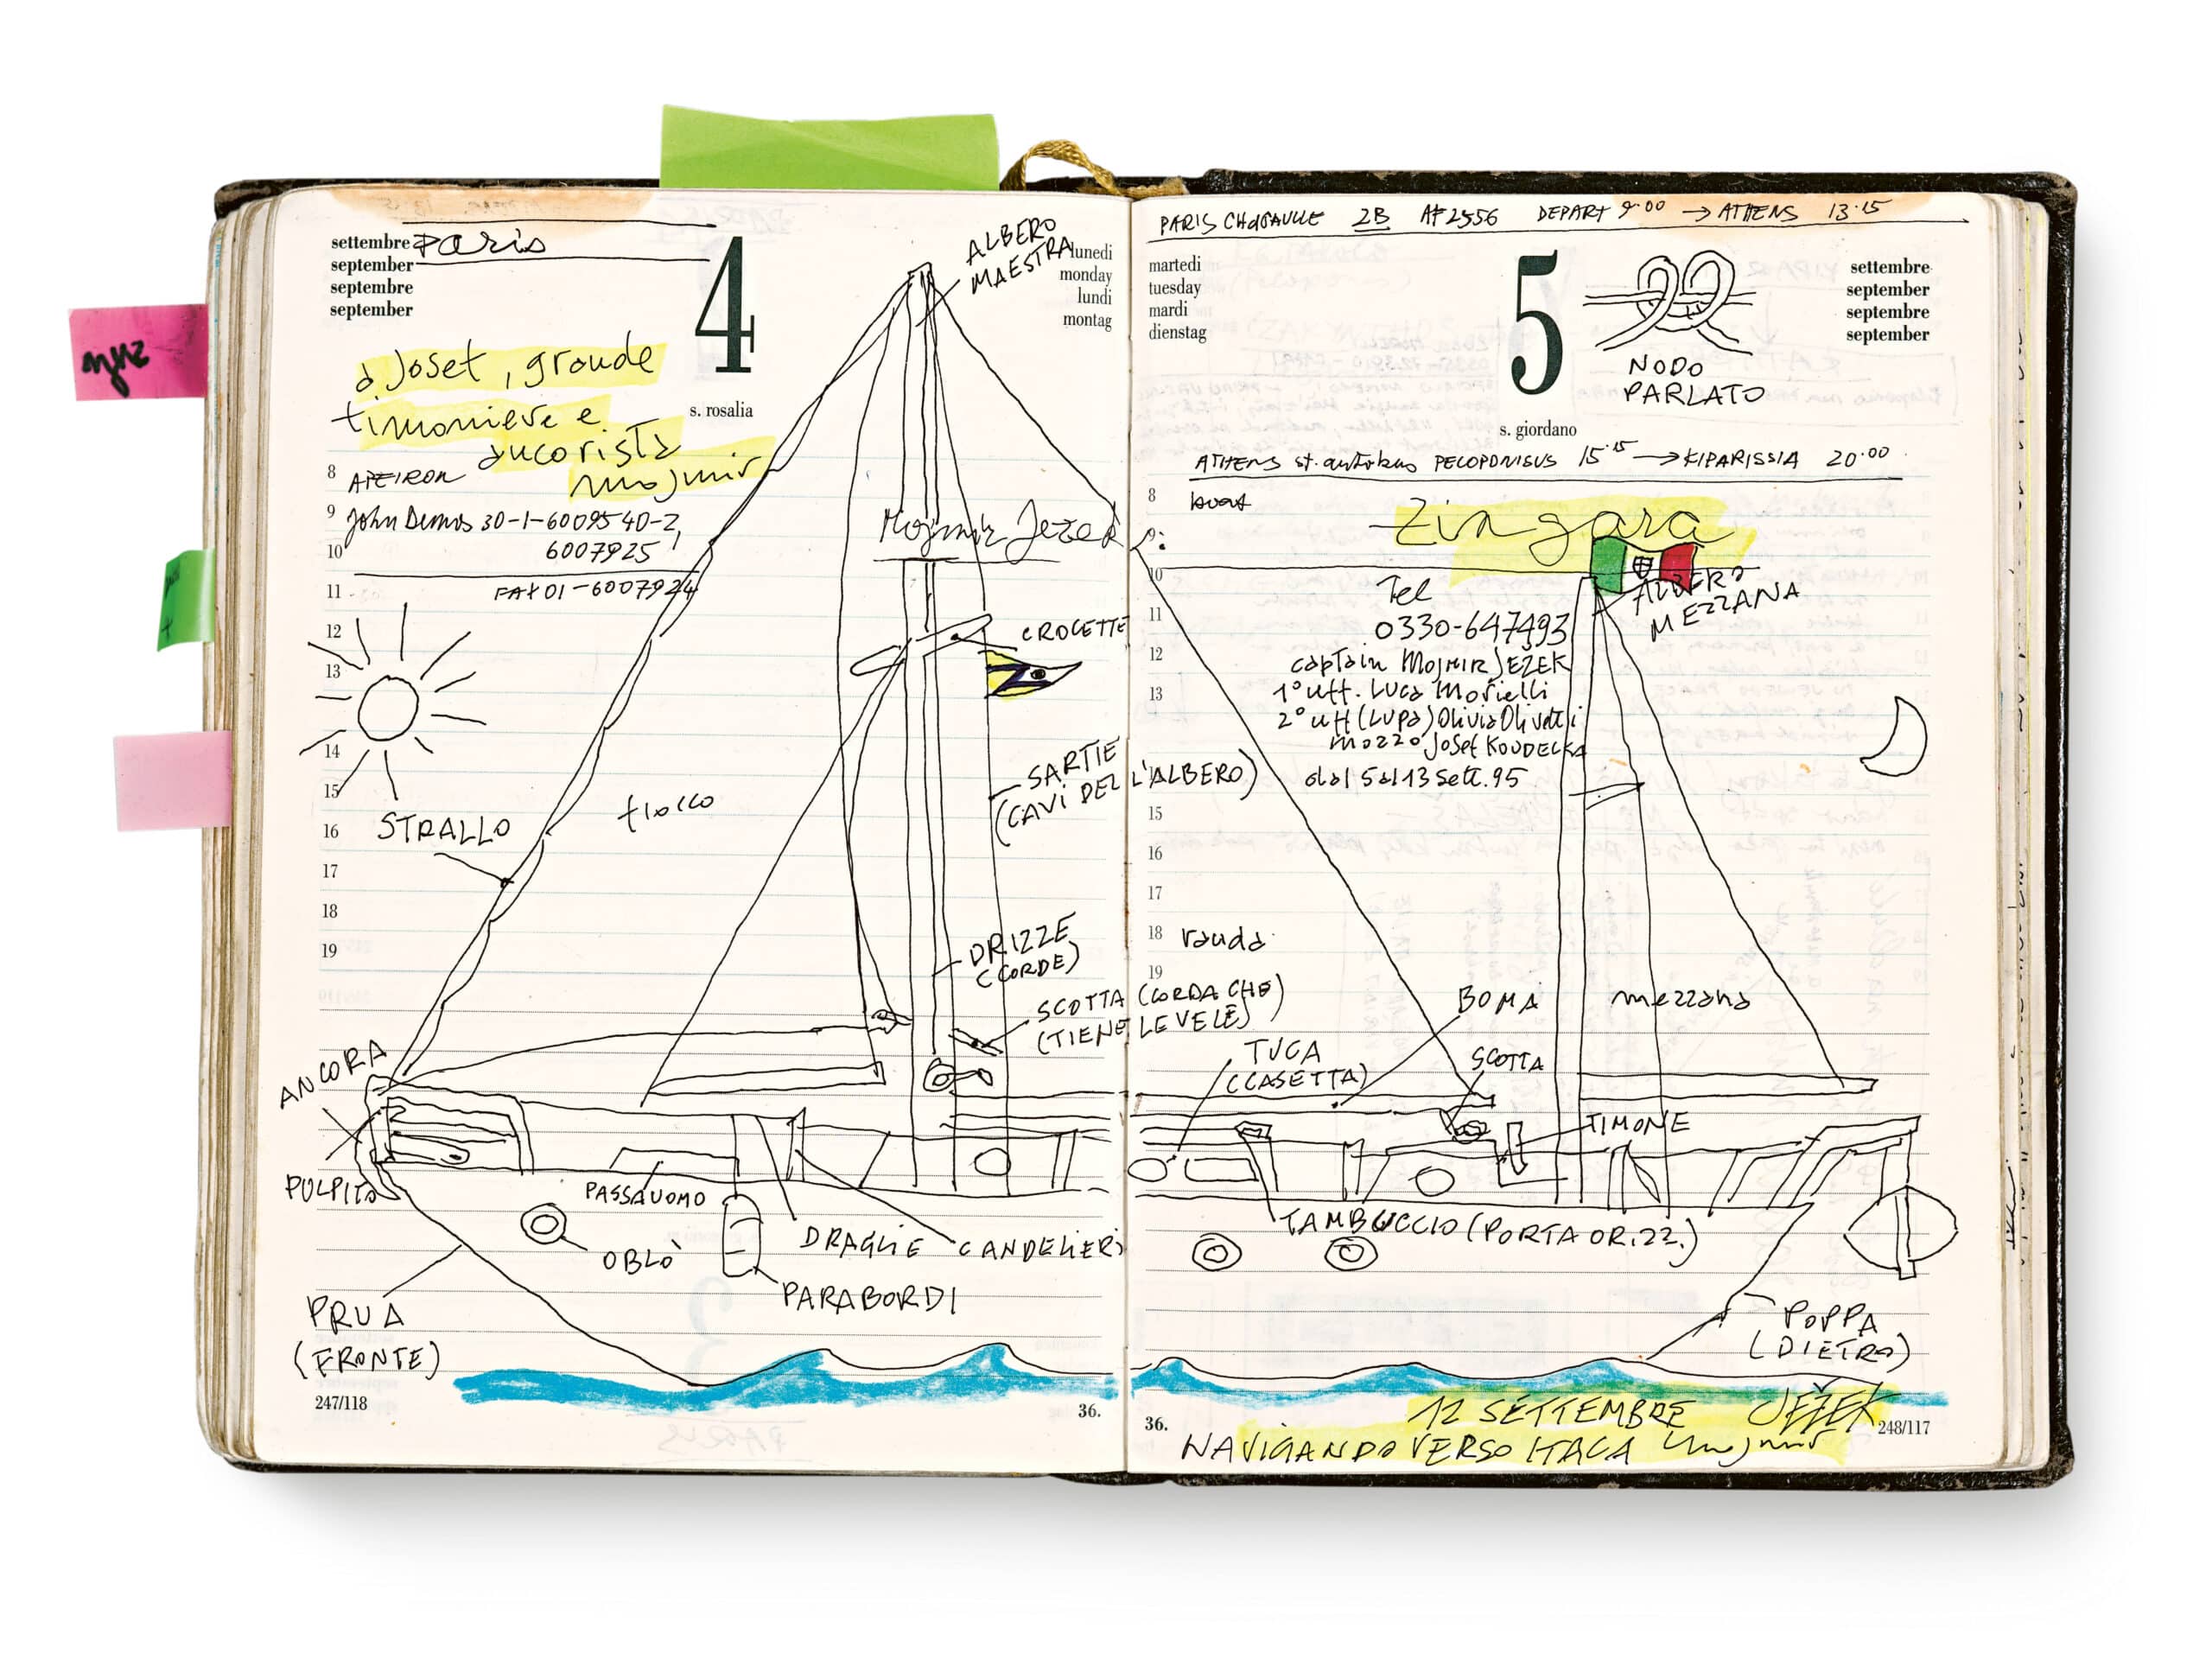 settembre Paris
september
september
september
4
lunedi
monday
lundi
montag
s. rosalia
à Josef, grande
timoniere e
ancorista
mojmir
8 APEIRON
9 John Demos 30-1-6009540-2,
10 6007925
11 FAX 01-6007924
12
13
14
15
16
17
18
19
ALBERO
MAESTRA
Mojmir Jezek
CROCETTE
SARTIE
(CAVI DELL'ALBERO)
STRALLO
fiocco
DRIZZE
(CORDE)
SCOTTA (CORDA CHE)
(TIENE LE VELE)
ANCORA
PULPITO
PASSAUOMO
OBLÒ
DRAGLIE
CANDELIERI
PARABORDI
PRUA
(FRONTE)
247/118
36.
PARIS 2B AF 2556 DEPART 9.00 → ATHENS 13.15
martedi
tuesday
mardi
dienstag
5
settembre
september
septembre
september
NODO
PARLATO
s. giordano
ATHENS st. autobus PELOPONISUS 15.15 → KIPARISSIA 20.00
8
9
10
11
12
13
15
16
17
18
19
Zingara
ALBERO
MEZZANA
Tel
0330-647493
captain MOJMIR JEZEK
1° uff. Luca Morielli
2° uff (LUPA) Olivia Olivotti
mozzo Josef KOUDELKA
dal 5 al 13 sett. 95
randa
BOMA
mezzana
SCOTTA
TUGA
(CASETTA)
TIMONE
TAMBUCCIO (PORTA ORIZZ.)
POPPA
(DIETRO)
12 SETTEMBRE JEŽEK
NAVIGANDO VERSO ITACA mojmir
36.
248/117